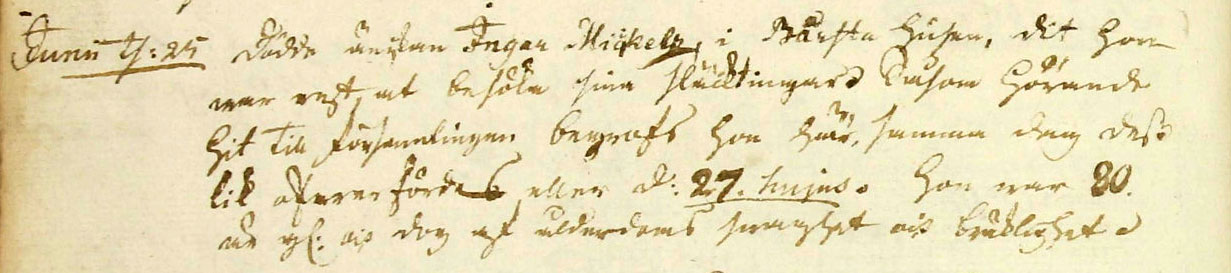 Junii d: 25 Dödde änkan Ingar Mickels, i Bursta husen, dit hon
war rest at besöka sina släcktingar Såsom hörande
hit till församlingen begrofs hon här, samma dag dess
lik öfwerfördes eller d: 27. hujus. hon war 80.
år gl: och dog af ålderdoms swaghet och bräcklighet